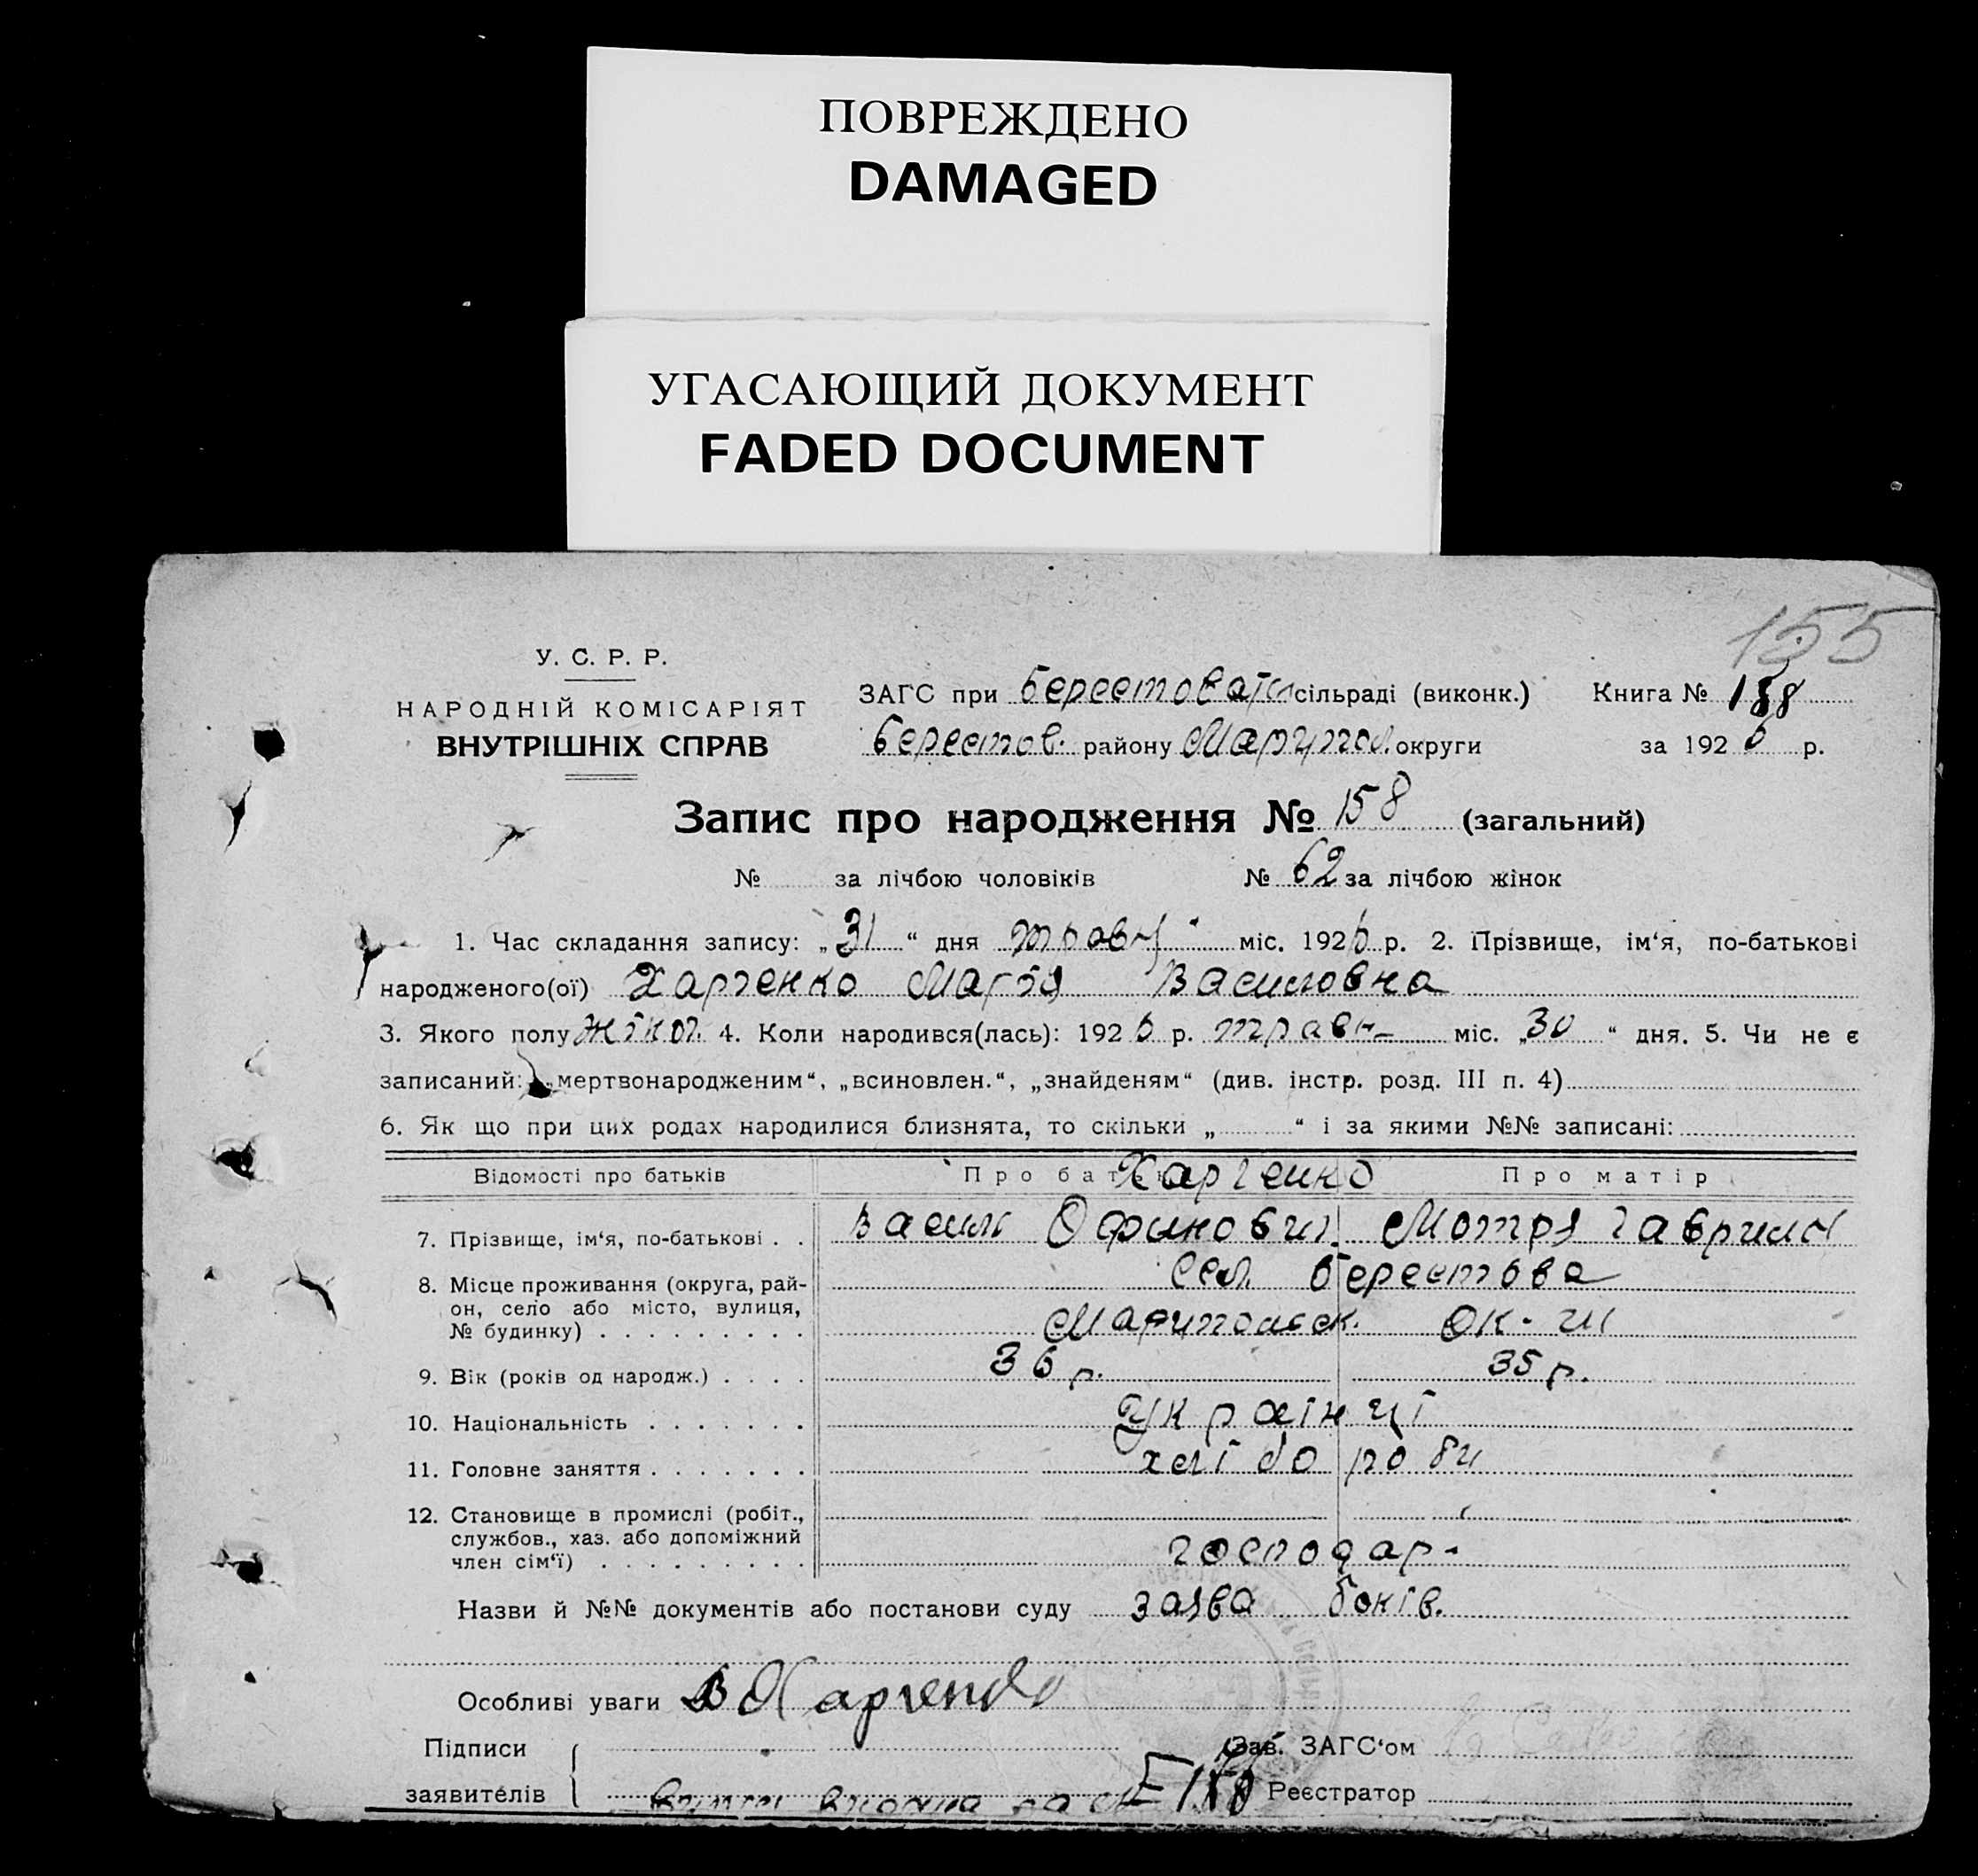 ПОВРЕЖДЕНО
DAMAGED
УГАСАЮЩИЙ ДОКУМЕНТ
FADED DOCUMENT
155
У. С. Р. Р.
НАРОДНІЙ КОМІСАРІЯТ
ВНУТРІШНІХ СПРАВ
ЗАГС при Берестоватс сільраді (виконк.) Книга № 158
Берестов. району Маріупол. округи за 1926 р.
Запис про народження № 158 (загальний)
№ за лічбою чоловіків № 62 за лічбою жінок
1. Час складання запису: „31“ дня травн міс. 1926 р. 2. Прізвище, ім‘я, по-батькові
народженого(ої) Харченко Марія Василовна
3. Якого полу жіноч. 4. Коли народився(лась): 1926 р. травн міс. „30“ дня. 5. Чи не є
записаний: „мертвонародженим“, „всиновлен.“, „знайденям“ (див. інстр. розд. III п. 4)
6. Як що при цих родах народилися близнята, то скільки „ “ і за якими №№ записані:
Відомості про батьків Про бать Харченко Про матір
7. Прізвище, ім‘я, по-батькові . . Васил Мотря Гаврил
8. Місце проживання (округа, рай-
он, село або місто, вулиця,
№ будинку) . . . . . . . . .
Сел. Берестова
Марупольск. ок-ги
9. Вік (років од народж.) . . . . 36 р. 35 р.
10. Національність . . . . . . . українці
11. Головне заняття . . . . . . . хлібороби
12. Становище в промислі (робіт.,
службов., хаз. або допоміжний
член сім‘ї) . . . . . . . . .
господар-
Назви й №№ документів або постанови суду заява боків.
Особливі уваги В Харченко
Підписи
заявителів
Зав. ЗАГС‘ом
Реєстратор